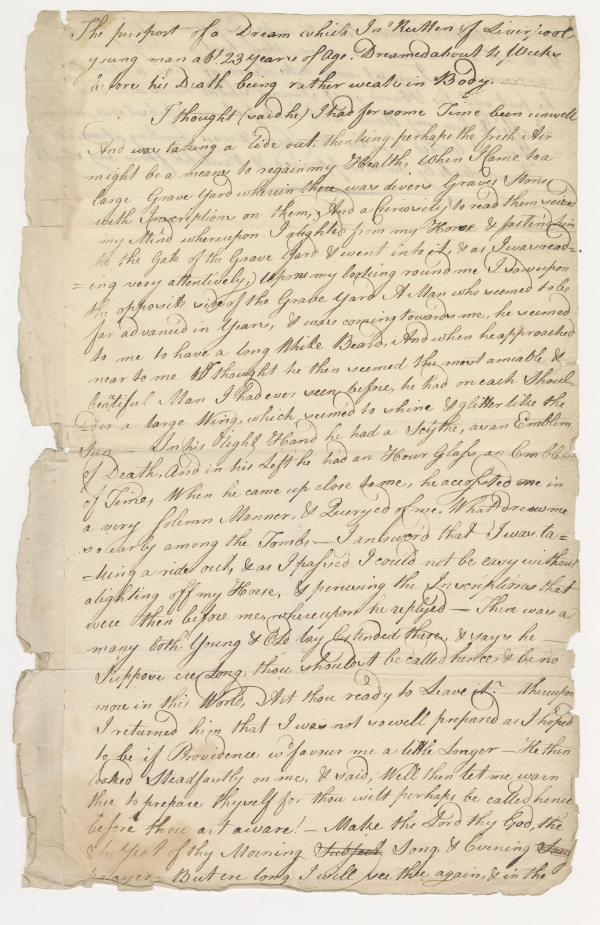 The purport of a Dream which Jno Rutten of Liverpool,
a young man abt. 23 years of Age. Dreamed about 4 Weeks
before his Death being rather weak in Body.
I thought (said he) I had for some Time been unwell
And was taking a ride out, thinking perhaps the fresh Air
might be a means to regain my Health, When I came to a
large Grave Yard wherein there was divers Graves Stones
with Inscriptions on them, And a Curiosity to read them seized
my Mind whereupon I alighted from my Horse & fasten'd him
to the Gate of the Grave Yard & went into it, & as I was read=
=ing very attentively, Upon my looking round me I saw upon
the opposite side of the Grave Yard A Man who seemed to be
far advanced in Years, & was coming towards me, he seemed
to me to have a long White Beard, And when he approached
near to me I thought he then seemed the most amiable &
beautiful Man I had ever seen before, he had on each Shoul=
=der a large Wing, which seem'd to shine & glitter like the
Sun — In his right Hand he had a Scythe, as an Emblem
of Death, And in his Left he had an Hour Glass, an Emblem
of Time, When he came up close to me, he accosted me in
a very solemn Manner, & Queryed of me, What drew me
so early among the Tombs — I answer'd that I was ta=
=king a ride out, & as I passed I could not be easy without
alighting off my Horse, & perusing the Inscriptions that
were then before me, whereupon he replyed — There was a
many both Young & Old lay Extended there, & says he —
Suppose ere Long, thou shouldst be called hence & be no
more in this World, Art thou ready to Leave it? — Whereupon
I returned him that I was not so well prepared as I hoped
to be if Providence wd favour me a little Longer — He then
looked Steadfastly on me, & said, Well then let me warn
thee to prepare thyself for thou wilt perhaps be called hence
before thou art aware! — Make the Lord thy God, the
Subject of thy Morning Subject Song & Evening
prayer — But ere long I will see thee again, & in the